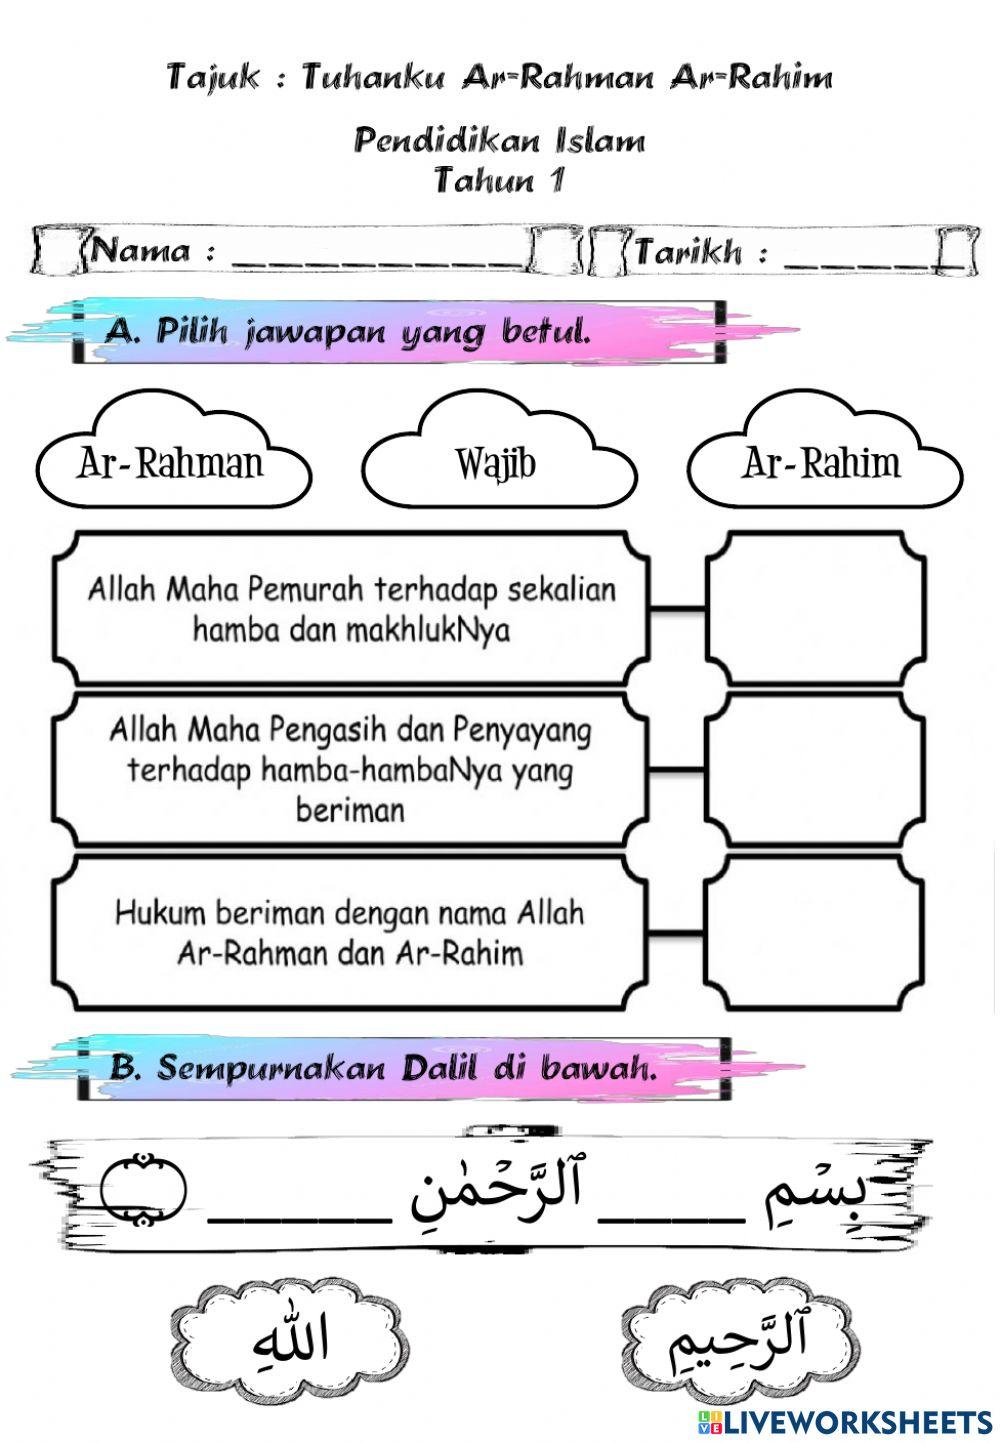 Tajuk : Tuhanku Ar-Rahman Ar-Rahim
Pendidikan Islam
Tahun 1
Nama : ____________ Tarikh : ________
A. Pilih jawapan yang betul.
Ar-Rahman Wajib Ar-Rahim
Allah Maha Pemurah terhadap sekalian
hamba dan makhlukNya
Allah Maha Pengasih dan Penyayang
terhadap hamba-hambaNya yang
beriman
Hukum beriman dengan nama Allah
Ar-Rahman dan Ar-Rahim
B. Sempurnakan Dalil di bawah.
بِسْمِ ____ ٱلرَّحْمَٰنِ _____
اللَّهِ ٱلرَّحِيمِ
LIVE LIVEWORKSHEETS